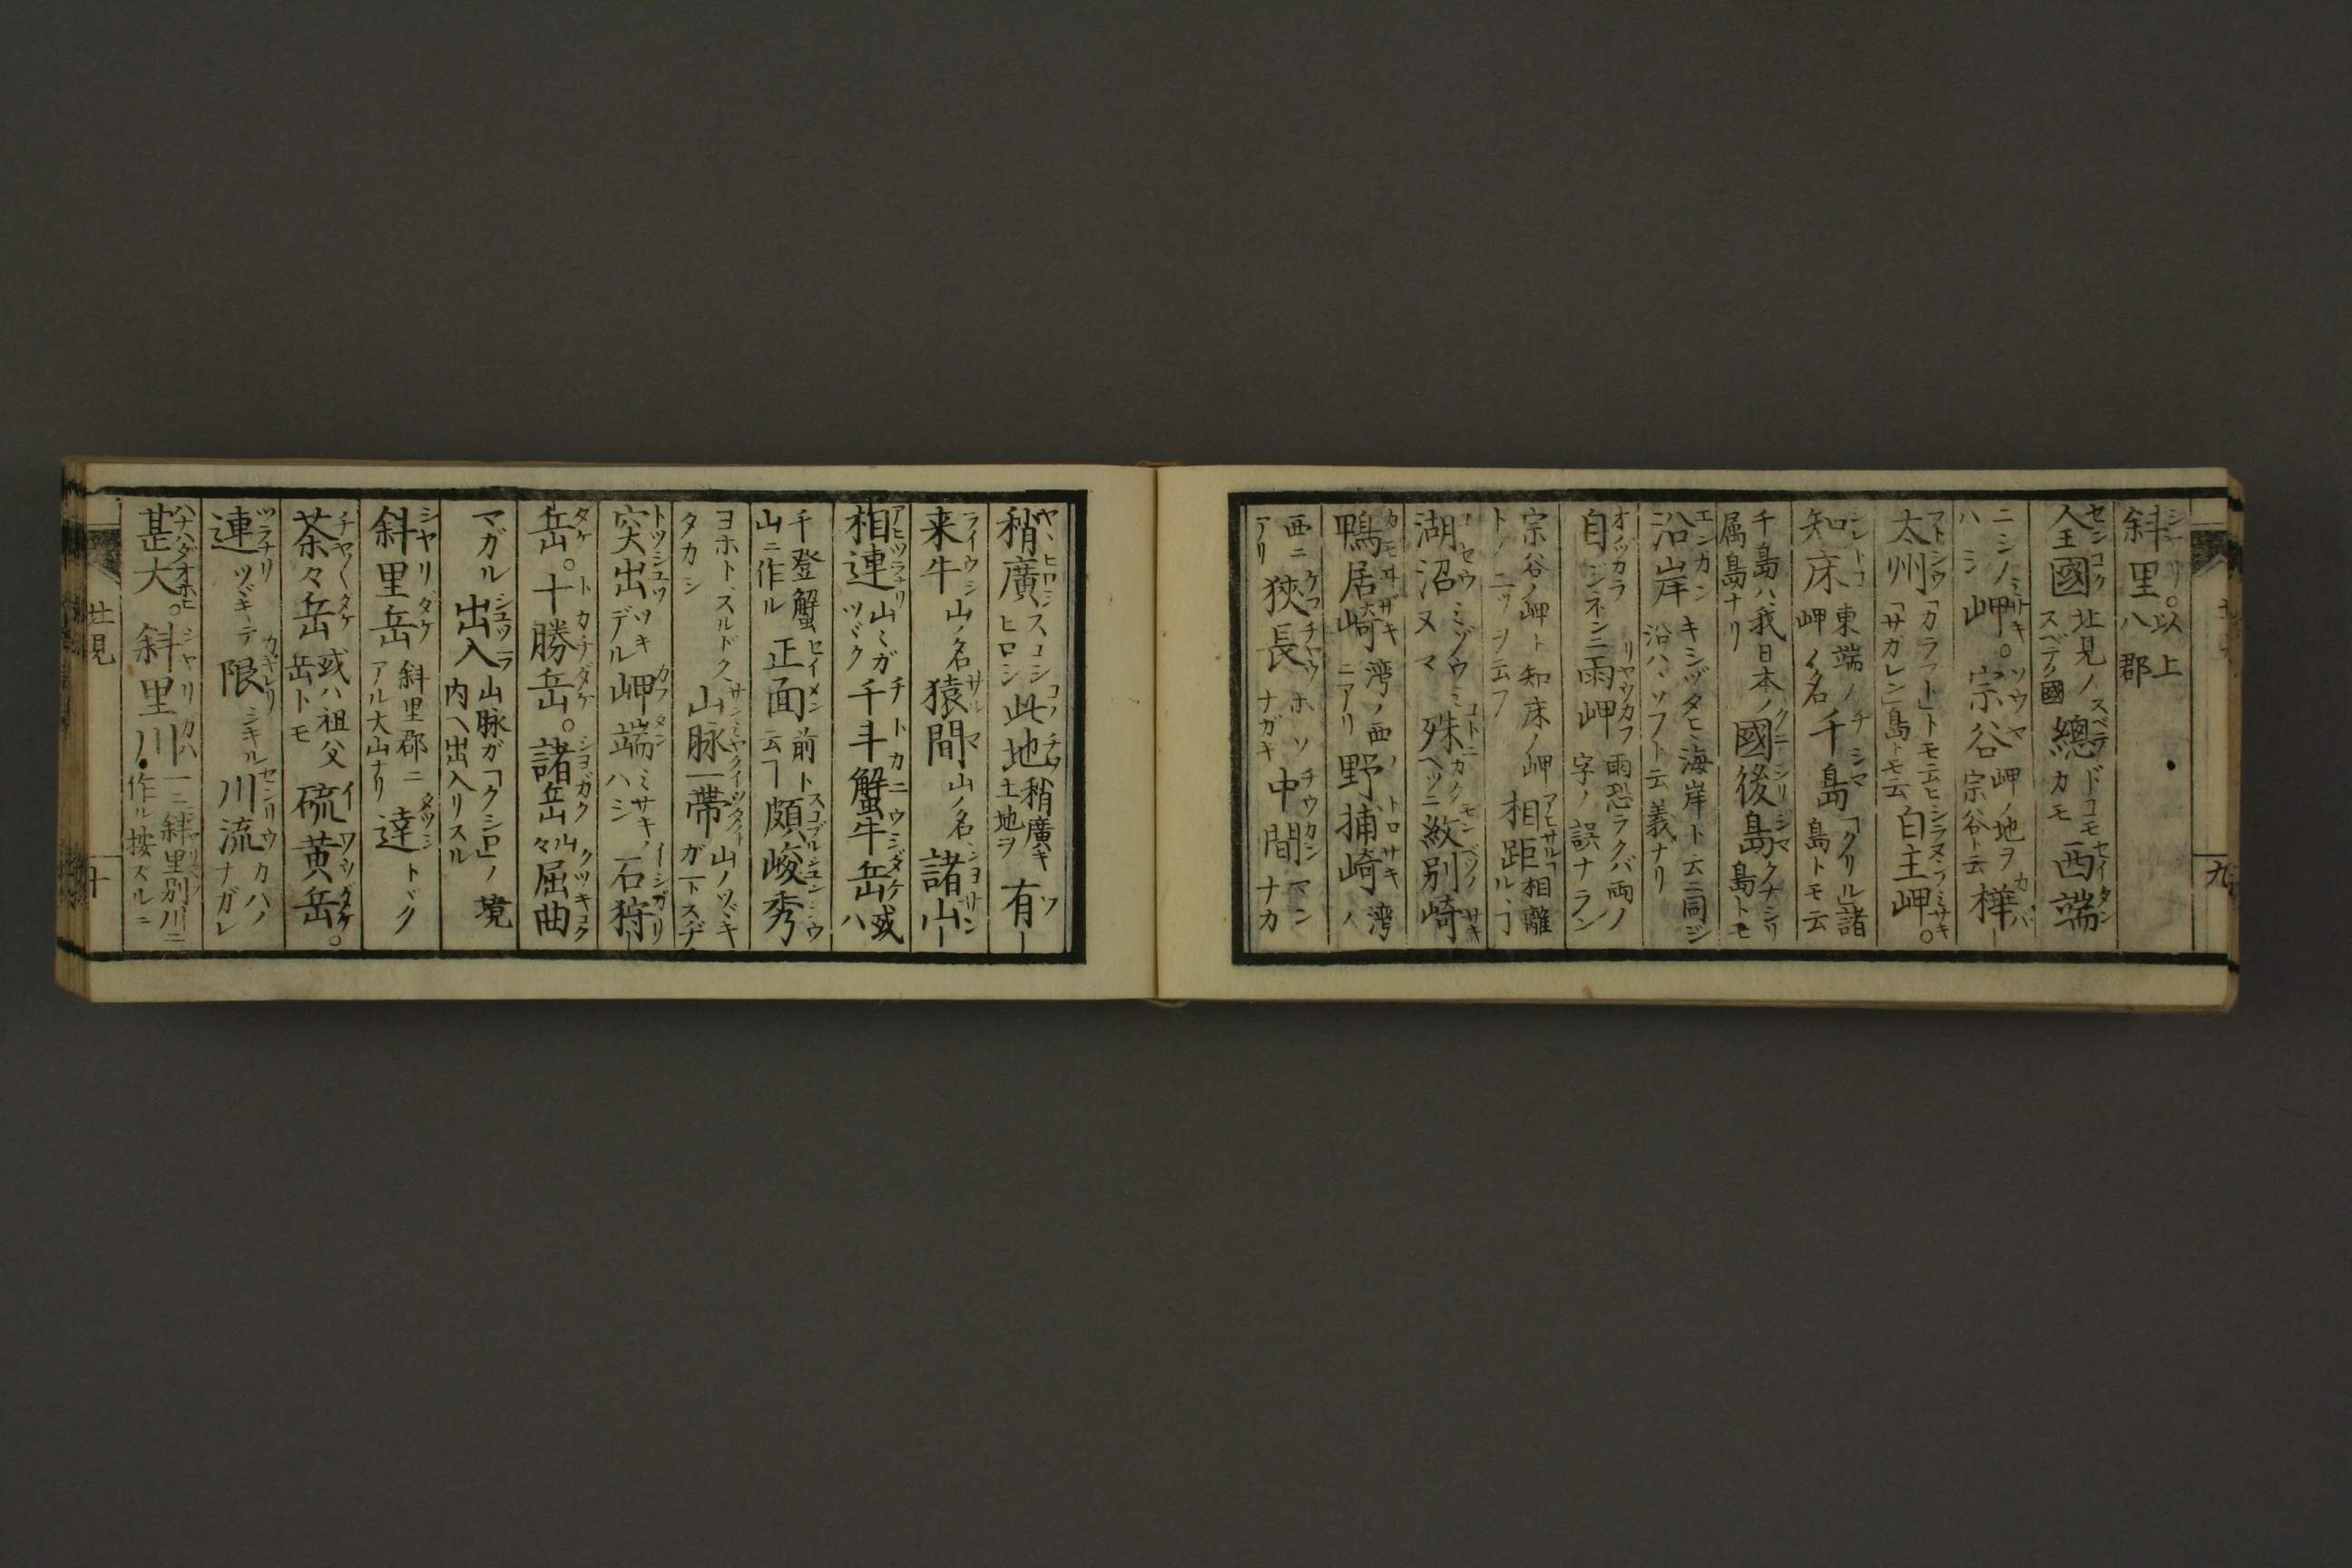 斜里。以上八郡
全國 北見ノスベテノ國 總 ドコモカモ 西端
ニシノハシ 岬。宗谷 岬ノ地ヲ宗谷ト云 樺
太州 「カラフト」トモ云ヒ「サガレン」島トモ云 白主岬。
知床 東端ノ岬ノ名 千島 「クリル」諸島トモ云
千島ハ我日本ノ属島ナリ 國後島 クナシリ島トモ
沿岸 キシヅタヒ海岸ト云ニ同ジ沿ハソフト云義ナリ
自 シネンニ 雨岬 雨恐ラクバ両ノ字ノ誤ナラン
宗谷ノ岬ト知床ノ岬トノ二ツヲ云フ 相距ル 相離ル
湖沼 ミヅウミヌマ 殊 ベツニ 紋別崎
鴨居崎 湾ノ西ニアリ 野捕崎 湾ノ
西ニアリ 狹長 ホソナガキ 中間 マンナカ
稍廣 スコシヒロシ 此地 稍廣キ土地ヲ 有
来牛 山ノ名 猿間 山ノ名 諸山
相連 山〻ガツヾク 千斗蟹牛岳 或ハ
千登蟹山ニ作ル 正面 前ト云フ 頗峻秀
ヨホトスルドクタカシ 山脉一帶 山ノツヾキガ一トスヂ
突出 ツキデル 岬端 ミサキノハシ 石狩
岳。十勝岳。諸岳 山々 屈曲
マガル 出入 山脉ガ「クシロ」ノ境内ヘ出入リスル
斜里岳 斜里郡ニアル大山ナリ 達 トヾク
茶々岳 或ハ祖父岳トモ 硫黄岳。
連 ツヾキテ 限 シキル 川流 カハノナガレ
甚大。斜里川。一ニ斜里別川ニ作ル按スルニ
北見
九
十